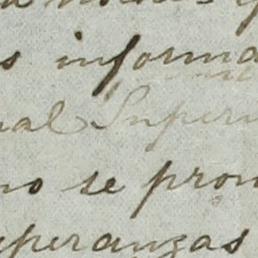 s informa
al Super
no se pron
speranzas